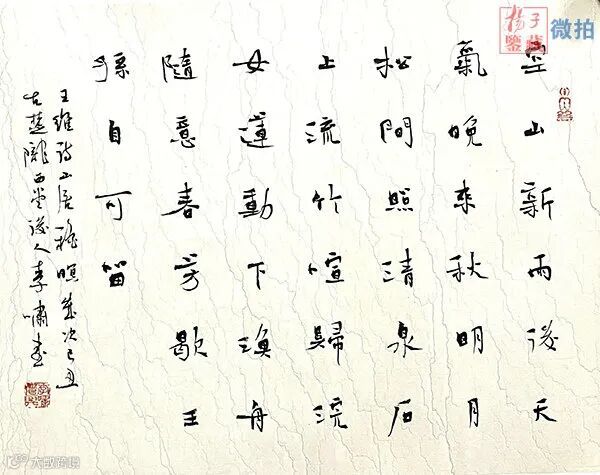 空山新雨後天
氣晚來秋明月
松間照清泉石
上流竹喧歸浣
女蓮動下漁舟
隨意春芳歇王
孫自可留
王維詩山居秋暝歲次己丑
古越隴西堂後人李嘯書
子鑒藏
微拍
大数跨境